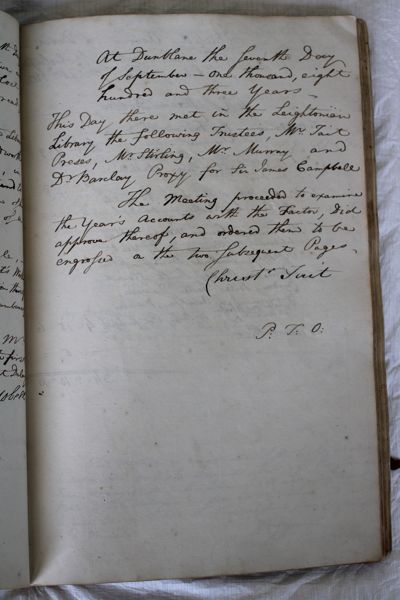 At Dunblane the Seventh Day
of September - one thousand, eight
hundred and three Years -
This Day there met in the Leightonian
Library the following Trustees, Mr Tait
Preses, Mr Stirling, Mr Murray and
Dr Barclay Proxy for Sir James Campbell
The Meeting proceeded to examine
the Year's Accounts with the Factor, Did
approve thereof, and ordered them to be
engrossed on the two Subsequent Pages.
Christr Tait
P. T. O: